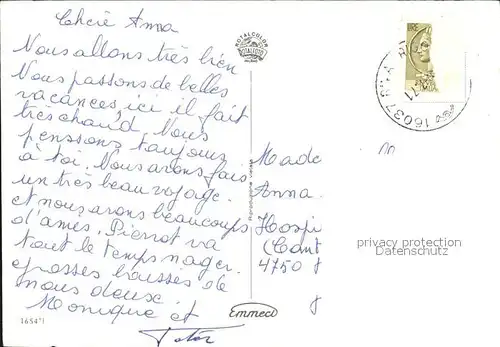 Chère Anna
Nous allons très bien
Nous passons de belles
vacances, ici il fait
très chaud. Nous
pensons toujours
à toi. Nous avons fais
un très beau voyage.
et nous avons beaucoups
d'amies. Pierrot va
tout le temps nager.
grosses baisses de
nous deux.
Monique et
ROTALCOLOR
ROTALFOTO
16037
71
Made
Anna
Hospi
(Cant
4750
privacy protection
Datenschutz
Riproduzione vietata
1654/1
Emmeci